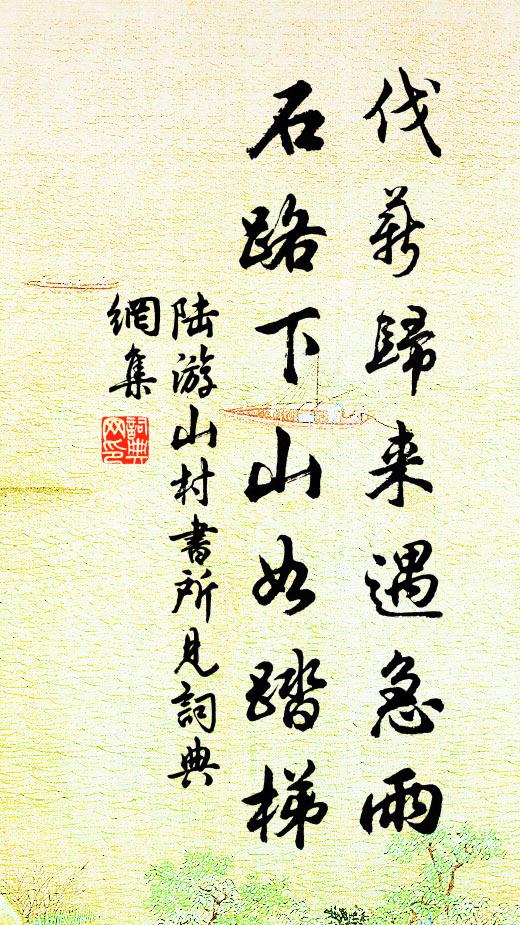 伐薪歸来遇急雨
石路下山如踏梯
陆游山村書所見詞典
網集
詞典網印